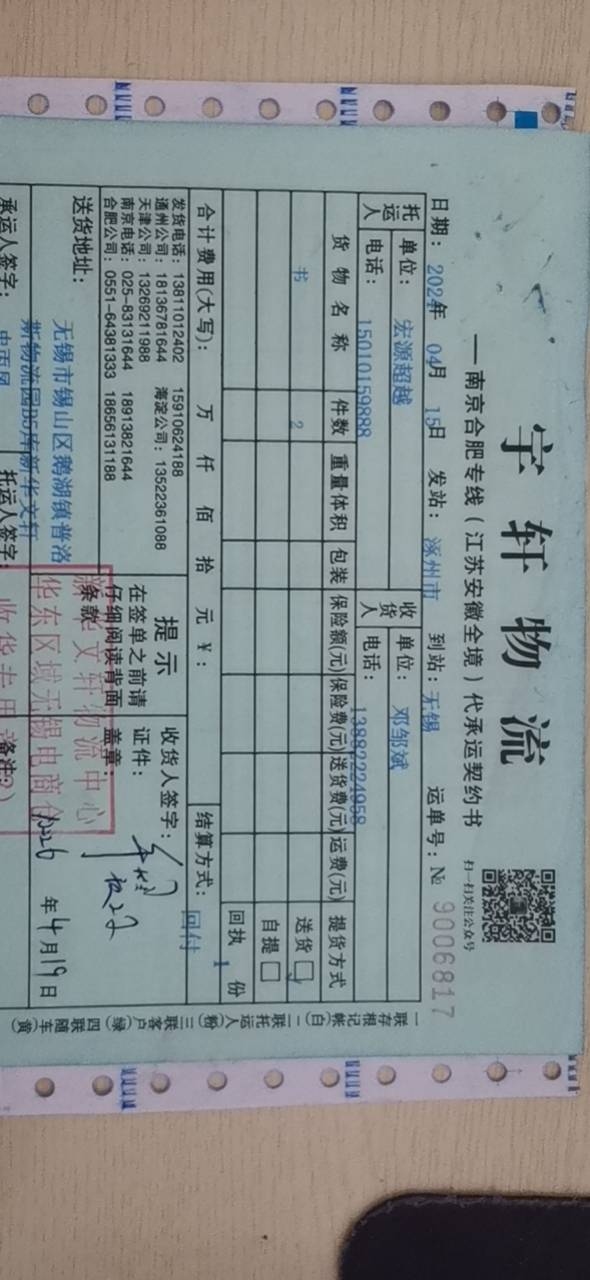 宇轩物流
扫一扫关注公众号
—南京合肥专线（江苏安徽全境）代承运契约书
日期：2024年 04月 15日 发站：涿州市 到站：无锡 运单号：№ 9006817
托运人 单位：宏源超越 收货人 单位：邓邹斌
电话：15010159888 电话：13882224958
货物名称 件数 重量体积 包装 保险额(元) 保险费(元) 送货费(元) 运费(元) 提货方式
书 2 送货
自提
回执 1 份
合计费用(大写)： 万 仟 佰 拾 元 ￥： 结算方式： 回付
发货电话：13811012402 15910624188
通州公司：18136781644 海淀公司：13522361088
天津公司：13269211988
南京电话：025-83131644 18913821644
合肥公司：0551-64381333 18656131188
提示
在签单之前请
仔细阅读背面
条款
收货人签字：
证件：
盖章：
送货地址：
无锡市锡山区鹅湖镇普洛
斯物流园B5库新华文轩
新华文轩物流中心
华东区域无锡电商仓
收货专用
年4月19日
承运人签字： 托运人签字： 备注：
一联存根记帐(白) 二联托运人(粉) 三联客户(绿) 四联随车(黄)